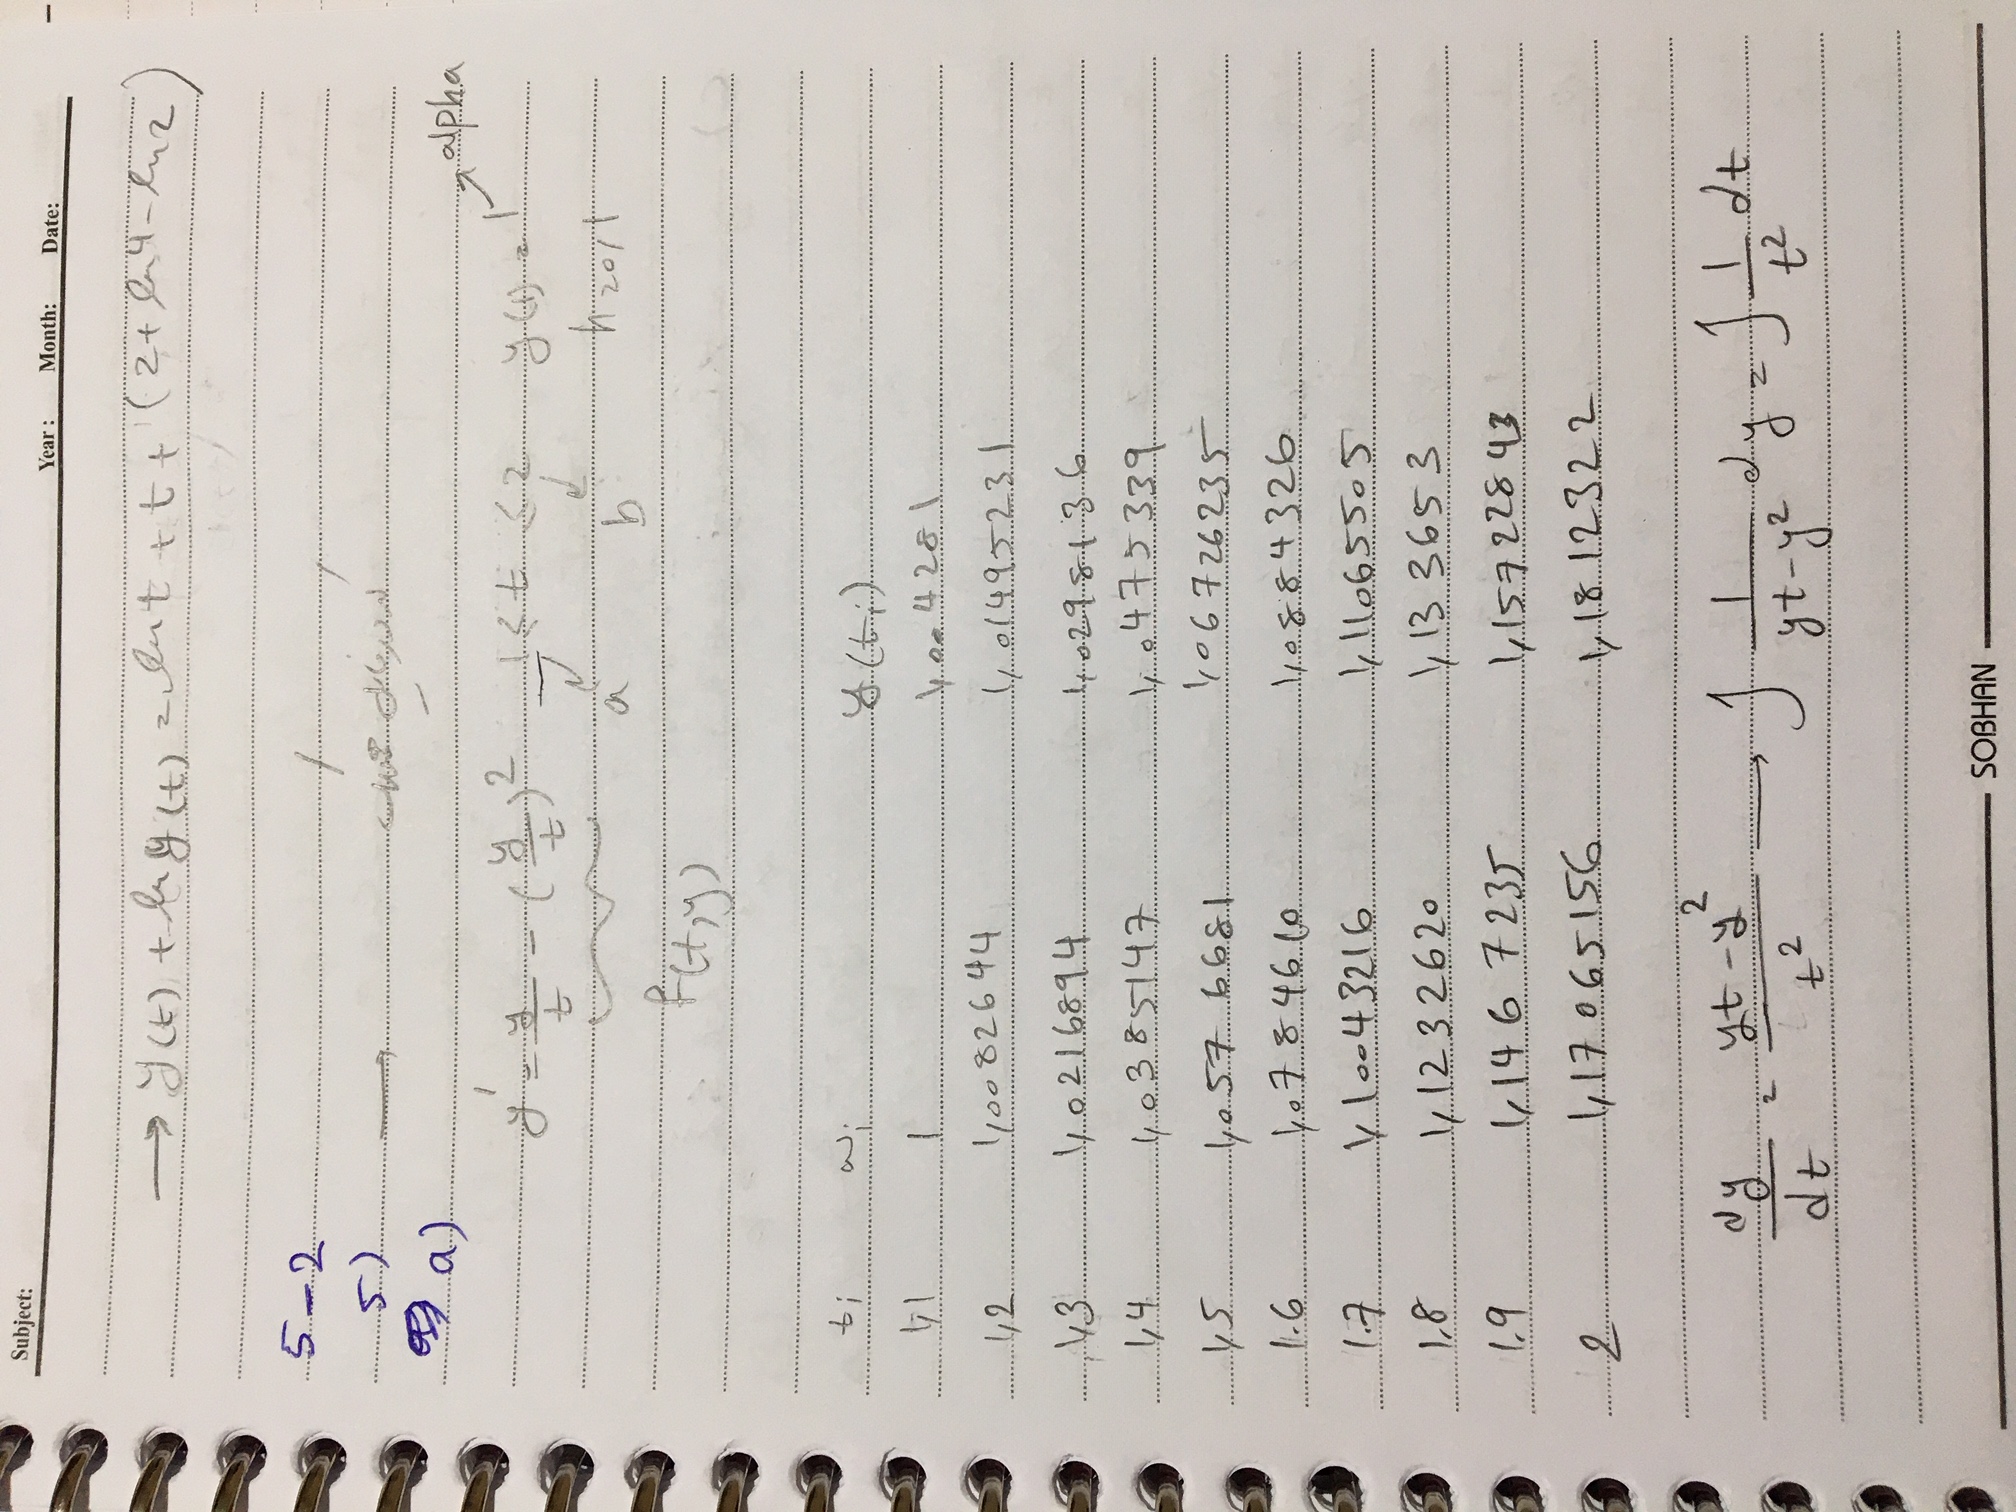 Subject: Year: Month: Date:
→ y(t) + ln y(t) = ln t + t + (2 + ln 4 - ln 2)
5-2
5)
a) y' = y/t - (y/t)² 1 ≤ t ≤ 2 y(1) = 1 → alpha
a b h = 0/1
f(t,y)
ti wi y(ti)
1,1 1 1,004281
1,2 1,0082644 1,0149523 1
1,3 1,0216894 1,0298136
1,4 1,0385147 1,0475339
1,5 1,0576681 1,0672623 5
1.6 1,0784610 1,0884326
1.7 1,1004321 6 1,1106550 5
1,8 1,1232620 1,133653
1,9 1,1467235 1,15722843
2 1,17065156 1,1812322
dy/dt = (yt - y²)/t² → ∫ 1/(yt - y²) dy = ∫ 1/t² dt
SOBHAN